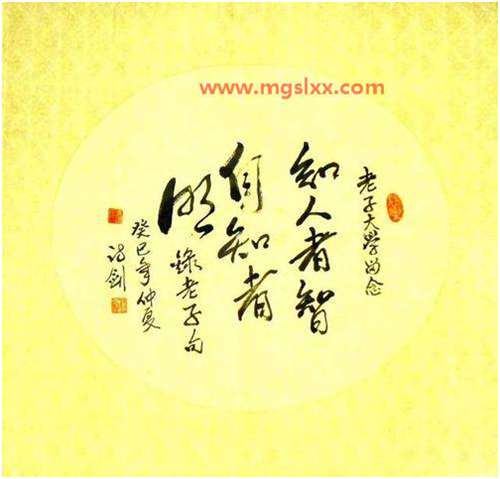 www.mgslxx.com
老子大學留念
知人者智
自知者
明
錄老子句
癸巳年仲夏
诗剑